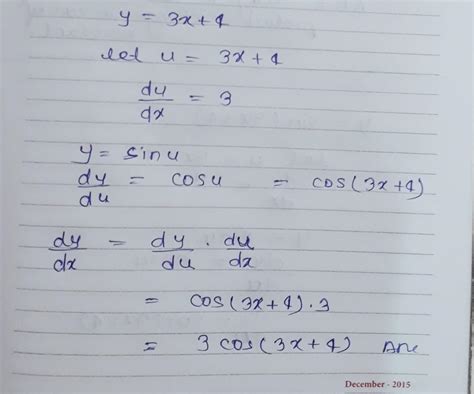 y = 3x+4
let u = 3x+4
du/dx = 3
y = sinu
dy/du = cosu = cos(3x+4)
dy/dx = dy/du . du/dx
= cos(3x+4).3
= 3 cos(3x+4) Ans
December - 2015